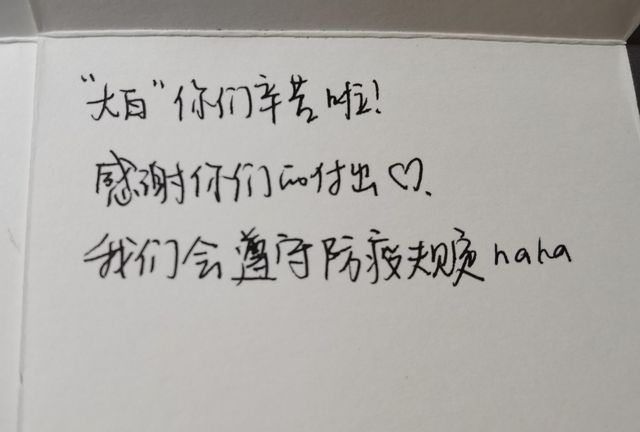 “大白”你们辛苦啦！
感谢你们的付出♡.
我们会遵守防疫规定haha